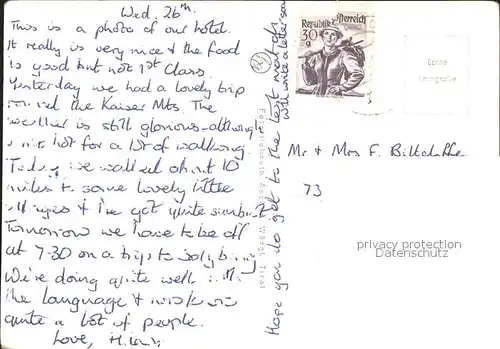 Wed. 26th.
This is a photo of our hotel.
It really is very nice & the food
is good but not 1st Class.
Yesterday we had a lovely trip
round the Kaiser Mts. The
weather is still glorious - although
hot for a lot of walking.
Today we walked about 10
miles to some lovely little
villages & I've got quite sunburnt
Tomorrow we have to be off
at 7-30 on a trip to
We're doing quite well with
the language &
quite a lot of people.
Love,
Hope you do get to the best most of
will write a letter soon
Republik Österreich
30
g
Echte
Fotografie
Wörgl, Tirol
Mr & Mrs F.
73
privacy protection
Datenschutz